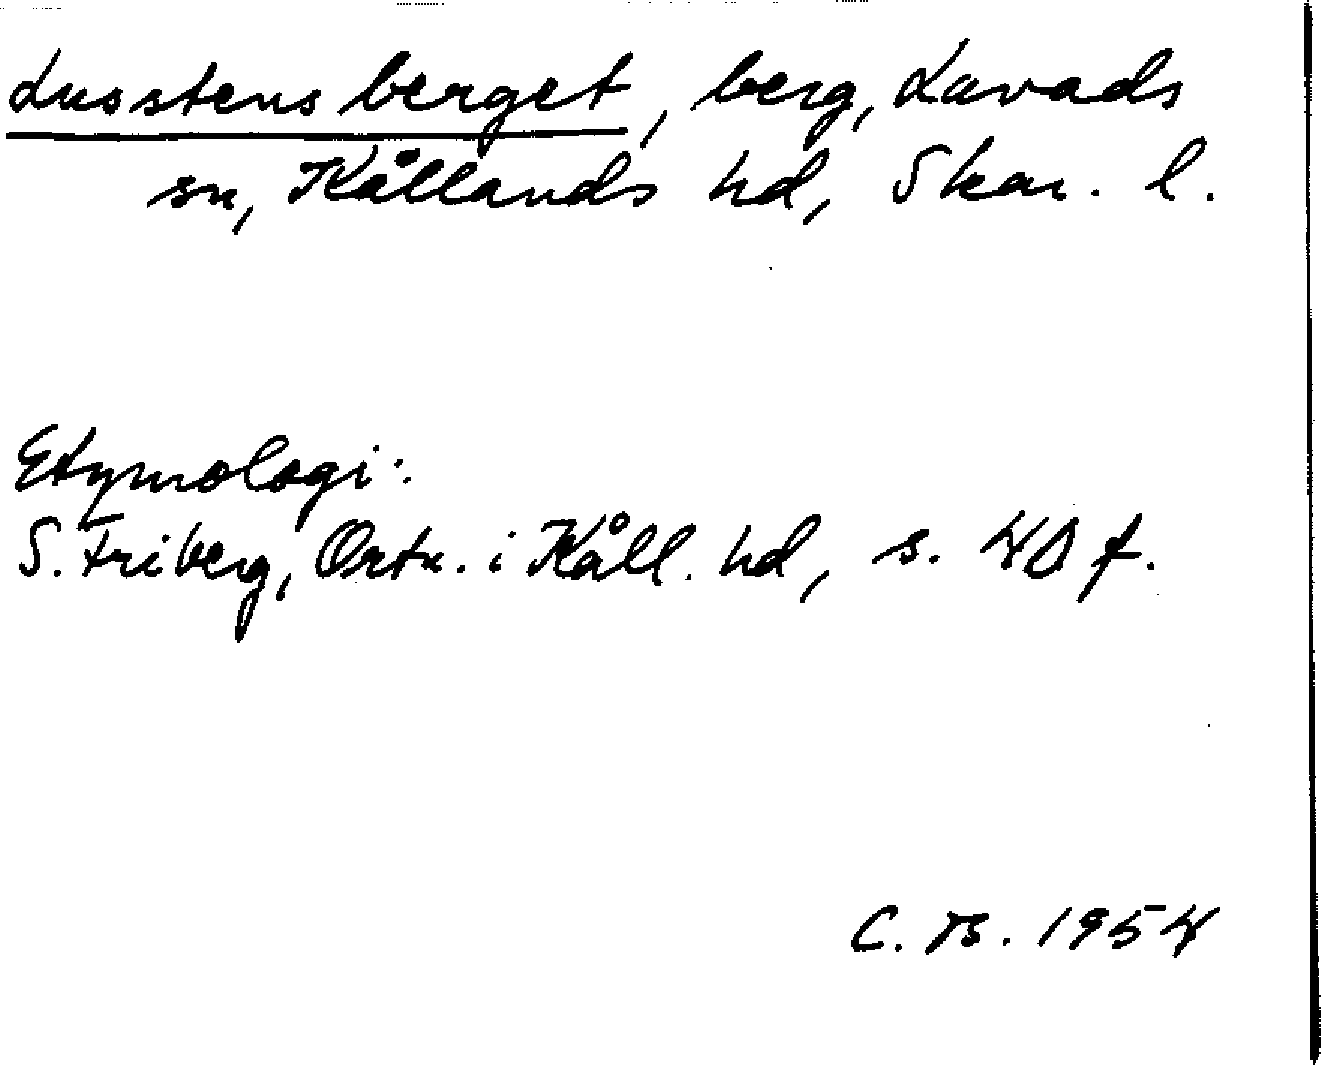 Lusstens berget, berg, Lavads
sn, Kållands hd, Skar. l.
Etymologi:
S. Friberg, Ortn. i Kåll. hd, s. 40 f.
C. B. 1954